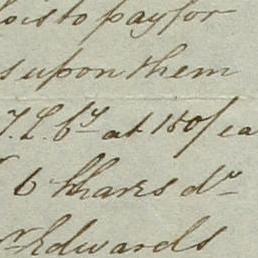 is to pay for
s upon them
at 150/ ea
6 Shares do
Edwards